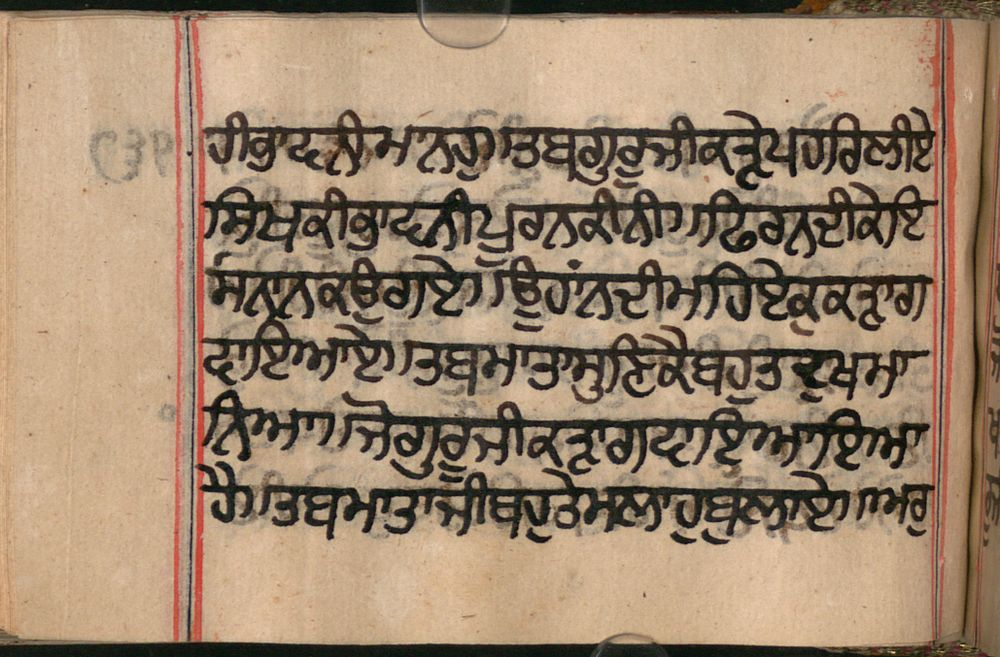 ਹੀ ਭਾਵਨੀ ਮਾਨਹੁ ॥ ਤਬ ਗੁਰੂ ਜੀ ਕੜੇ ਪਹਰਿ ਲੀਏ
ਸਿਖ ਕੀ ਭਾਵਨੀ ਪੂਰਨ ਕੀਨੀ ॥ ਫਿਰ ਨਦੀ ਕੇ ਇ
ਸਨਾਨ ਕਉ ਗਏ ॥ ਊਹਾਂ ਨਦੀ ਮਹਿ ਏਕੁ ਕੜਾ ਗ
ਵਾਇ ਆਏ ॥ ਤਬ ਮਾਤਾ ਸੁਣਿ ਕੈ ਬਹੁਤ ਦੁਖ ਮਾ
ਨਿਆ ॥ ਜੋ ਗੁਰੂ ਜੀ ਕੜਾ ਗਵਾਇ ਆਇਆ
ਹੈ ॥ ਤਬ ਮਾਤਾ ਜੀ ਬਹੁਤੇ ਮਲਾਹੁ ਬੁਲਾਏ ॥ ਅਰੁ